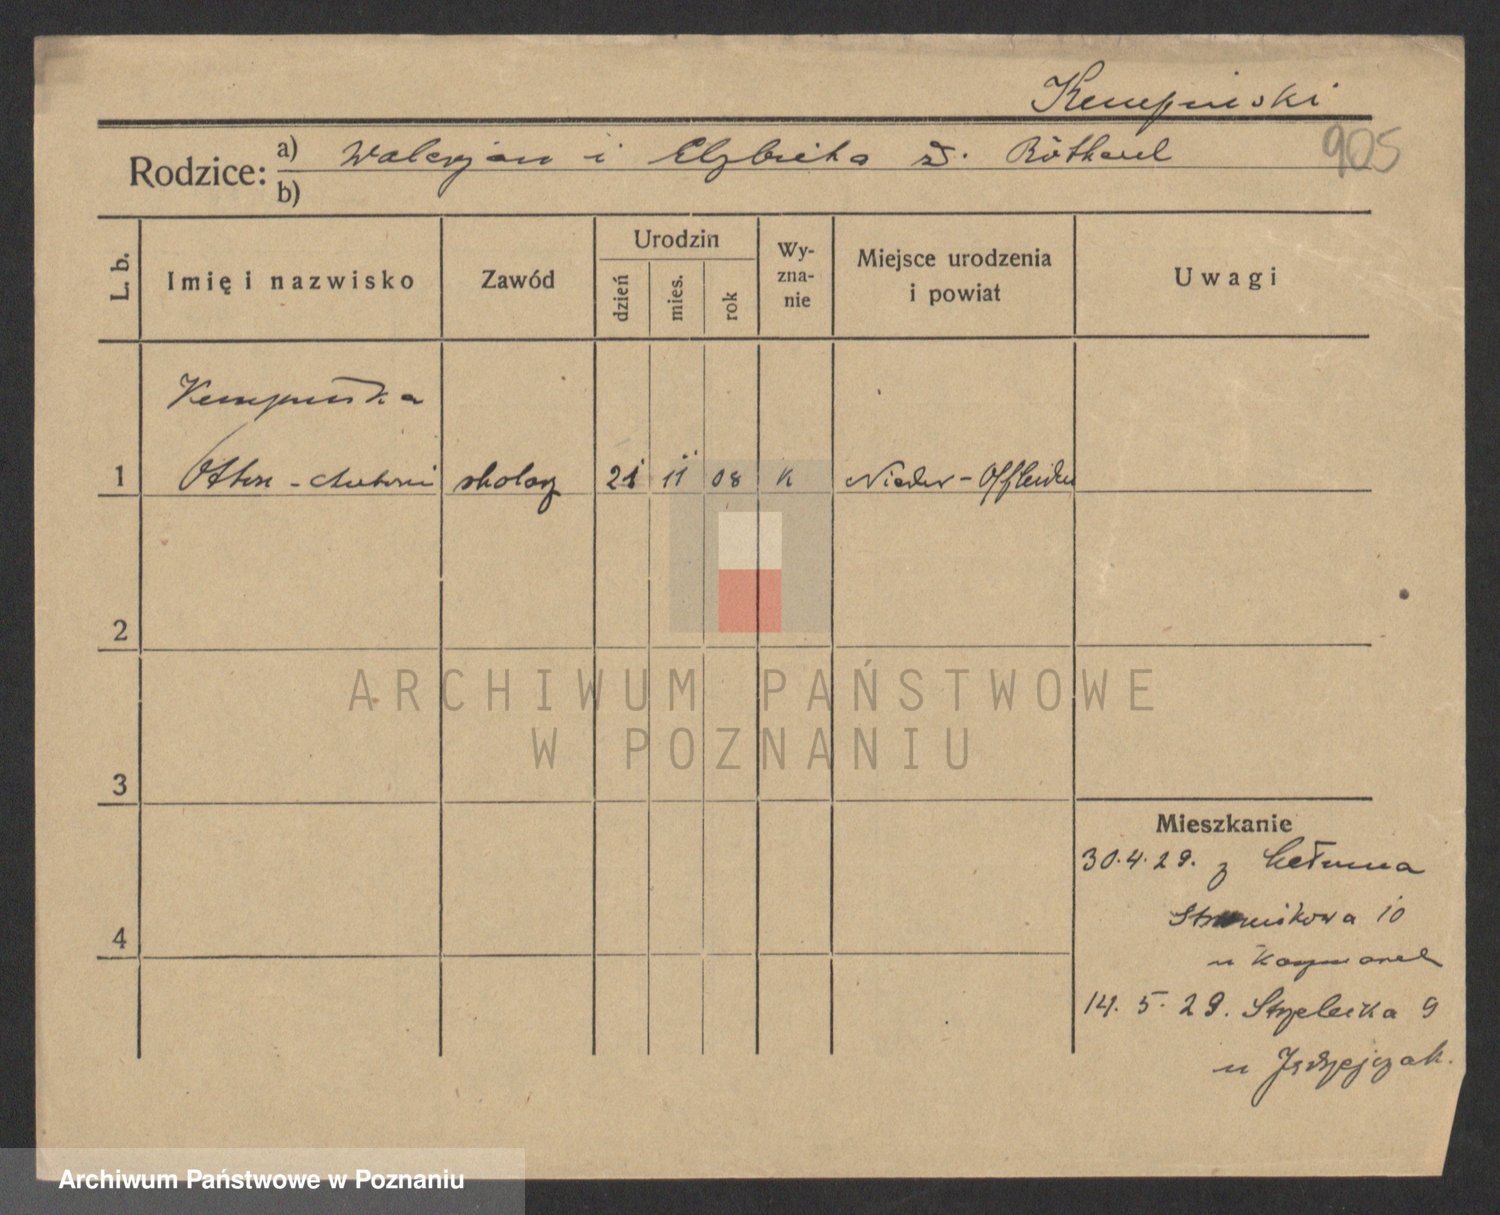 Kempinski
905
Rodzice: a) Waleryan i Elzbieta z d.
b)
L. b.
Imię i nazwisko
Zawód
Urodzin
dzień
mies.
rok
Wy-
zna-
nie
Miejsce urodzenia
i powiat
Uwagi
Kempinska
1 Otton - Antoni 21 11 08 K Nieder-Offleiden
2
3
4
ARCHIWUM PAŃSTWOWE
W POZNANIU
Mieszkanie
30.4.29. z Chełmna
10
u
14. 5. 29. Strzelecka 9
u Jędrzejczak.
Archiwum Państwowe w Poznaniu